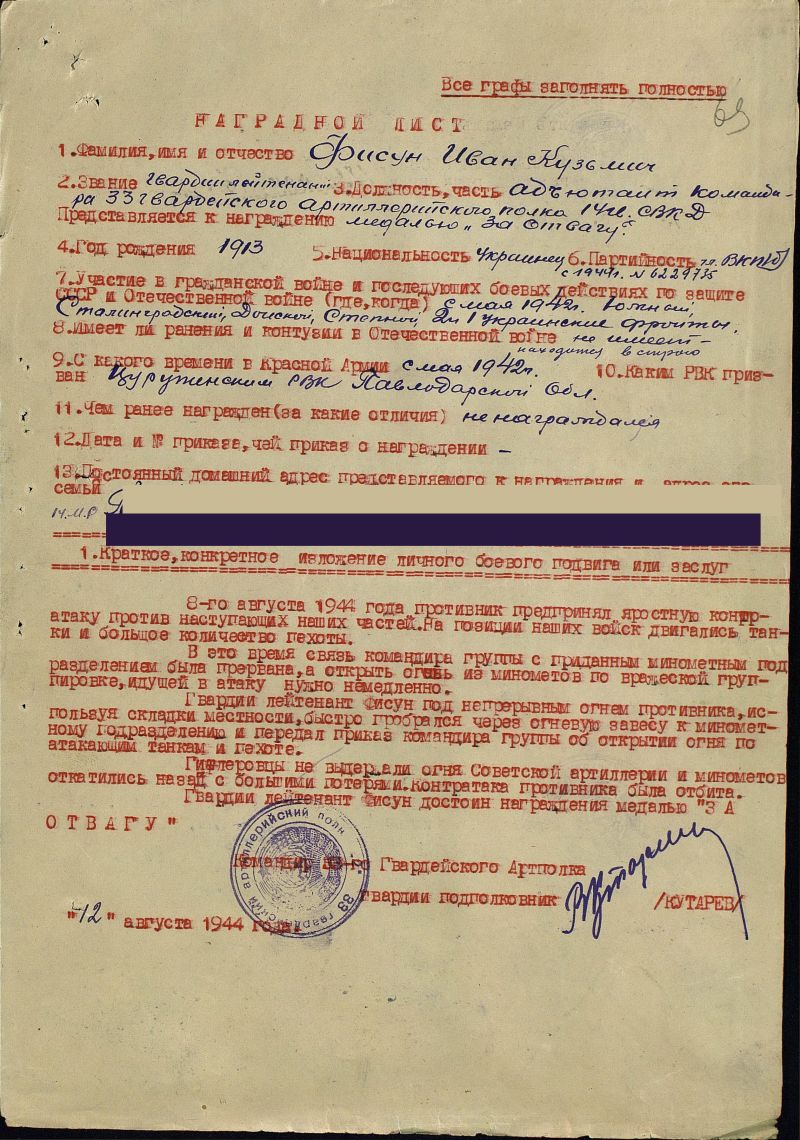 Все графы заполнять полностью
69
НАГРАДНОЙ ЛИСТ
1.Фамилия,имя и отчество Фисун Иван Кузьмич
2.Звание гвардии лейтенант 3.Должность,часть адъютант команди-
ра 33 гвардейского артиллерийского полка 14 гв. СВКД
Представляется к награждению медалью „За Отвагу".
4.Год рождения 1913 5.Национальность Украинец 6.Партийность чл. ВКП(б)
с 1944г. N 6229735
7.Участие в гражданской войне и последующих боевых действиях по защите
СССР и Отечественной войне (где,когда) с мая 1942г. Южный,
Сталинградский, Донской, Степной, 2 и 1 Украинские фронты.
8.Имеет ли ранения и контузии в Отечественной войне не имеет-
находится в
9.С какого времени в Красной Армии с мая 1942г. 10.Каким РВК приз-
ван РВК Павлодарской Обл.
11.Чем ранее награжден(за какие отличия) не награждался
12.Дата и № приказа,чей приказ о награждении -
13.Постоянный домашний адрес представляемого к награждения и адрес его
семьи
1.Краткое,конкретное изложение личного боевого подвига или заслуг
8-го августа 1944 года противник предпринял яростную контр-
атаку против наступающих наших частей.На позиции наших войск двигались тан-
ки и большое количество пехоты.
В это время связь командира группы с приданным минометным под
разделением была прервана,а открыть огонь из минометов по вражеской груп-
пировке,идущей в атаку нужно немедленно.
Гвардии лейтенант Фисун под непрерывным огнем противника,ис-
пользуя складки местности,быстро пробрался через огневую завесу к миномет-
ному подразделению и передал приказ командира группы об открытии огня по
атакающим танкам и пехоте.
Гитлеровцы не выдержали огня Советской артиллерии и минометов
откатились назад с большими потерями.Контратака противника была отбита.
Гвардии лейтенант Фисун достоин награждения медалью "ЗА
ОТВАГУ"
Командир 33-го Гвардейского Артполка
гвардии подполковник /КУТАРЕВ/
33 гвардейский артиллерийский полк
"12" августа 1944 года.